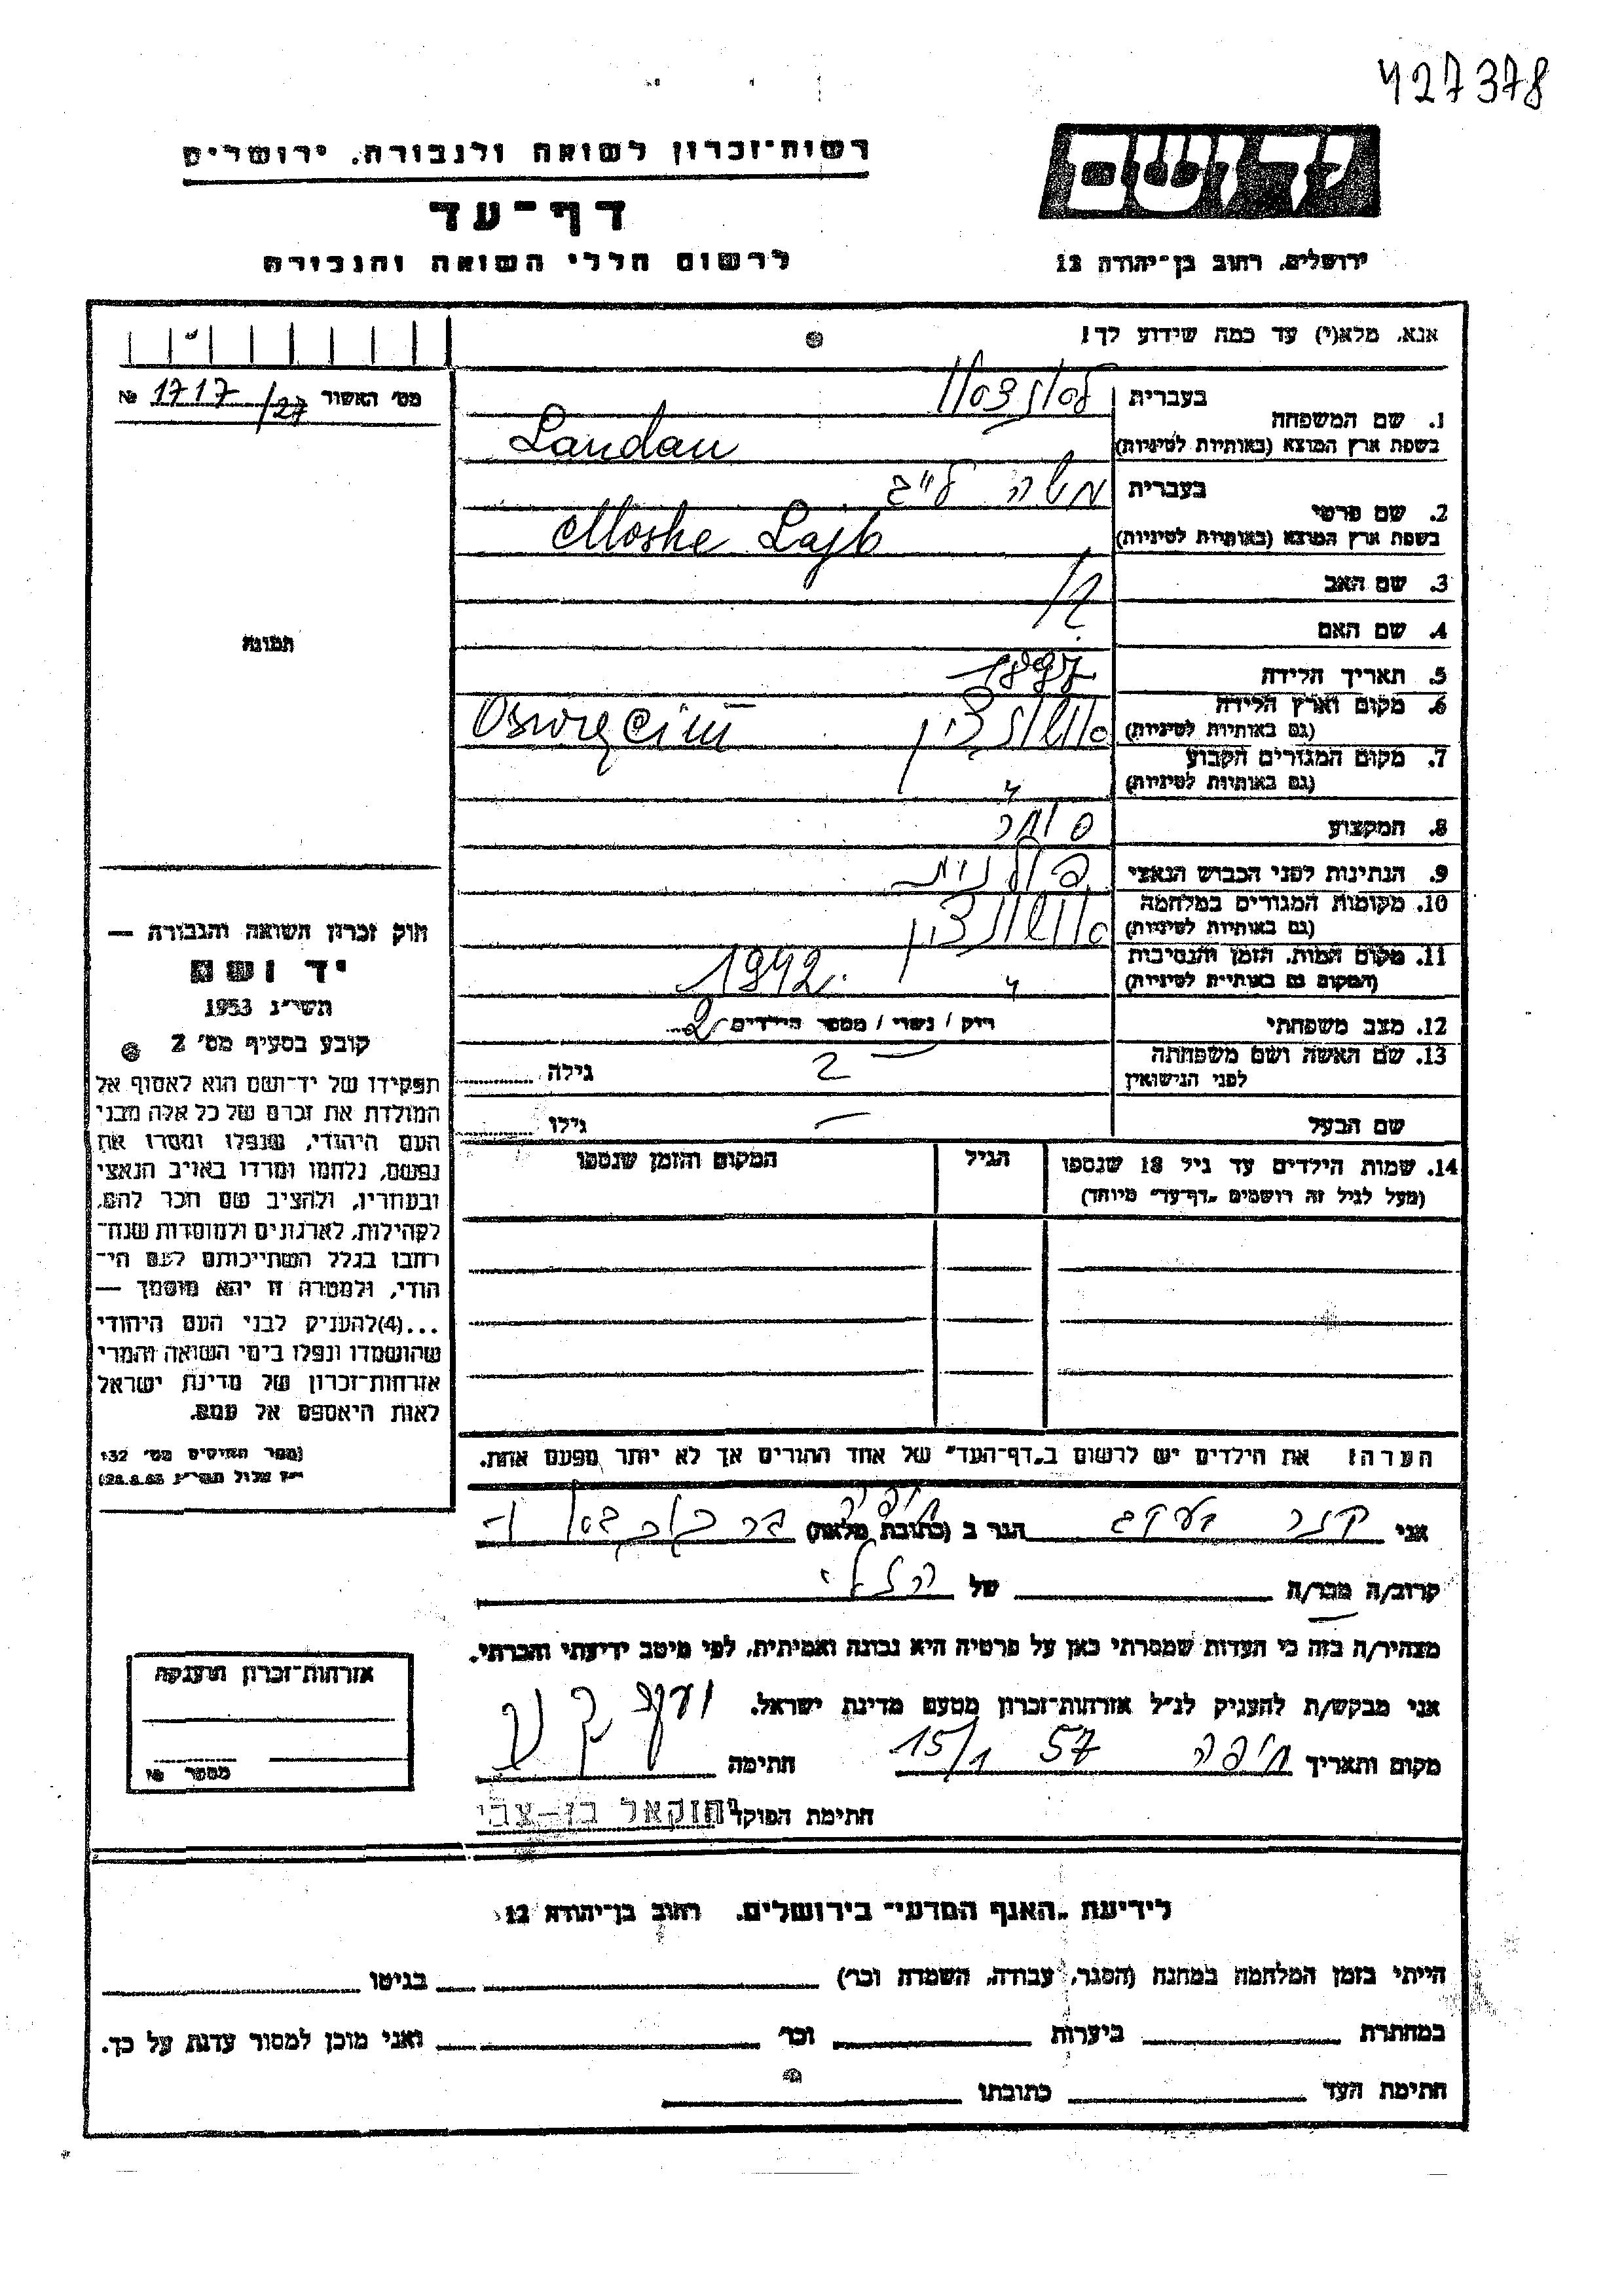 427378
רשות־זכרון לשואה ולגבורה, ירושלים
יד ושם
דף־עד
לרשום חללי השואה והגבורה
ירושלים, רחוב בן־יהודה 12
אנא, מלא(י) עד כמה שידוע לך!
מס' האשור 1717/27 №
1. שם המשפחה
בעברית
בשפת ארץ המוצא (באותיות לטיניות) Landau
2. שם פרטי
בעברית משה לייב
בשפת ארץ המוצא (באותיות לטיניות) Moshe Lajb
3. שם האב
4. שם האם
5. תאריך הלידה 1897
6. מקום וארץ הלידה
(גם באותיות לטיניות) Oswięcim
7. מקום המגורים הקבוע
(גם באותיות לטיניות)
8. המקצוע סוחר
9. הנתינות לפני הכבוש הנאצי פולנית
10. מקומות המגורים במלחמה
(גם באותיות לטיניות)
11. מקום המות, הזמן והנסיבות
(המקום גם באותיות לטיניות) 1942.
12. מצב משפחתי רווק / נשוי / מספר הילדים 2
13. שם האשה ושם משפחתה
לפני הנישואין גילה
שם הבעל גילו
14. שמות הילדים עד גיל 18 שנספו
(מעל לגיל זה רושמים "דף־עד" מיוחד)
הגיל
המקום והזמן שנספו
הערה: את הילדים יש לרשום ב"דף־העד" של אחד ההורים אך לא יותר מפעם אחת.
תמונה
חוק זכרון השואה והגבורה —
יד ושם
תשי"ג 1953
קובע בסעיף מס' 2
תפקידו של יד־ושם הוא לאסוף אל
המולדת את זכרם של כל אלה מבני
העם היהודי, שנפלו ומסרו את
נפשם, נלחמו ומרדו באויב הנאצי
ובעוזריו, ולהציב שם וזכר להם,
לקהילות, לארגונים ולמוסדות שנח־
רבו בגלל השתייכותם לעם הי־
הודי, ולמטרה זו יהא מוסמך —
...(4) להעניק לבני העם היהודי
שהושמדו ונפלו בימי השואה והמרי
אזרחות־זכרון של מדינת ישראל
לאות היאספם אל עמם.
(ספר החוקים מס' 132
י"ז אלול תשי"ג 28.8.53)
אני יעקב הגר ב (כתובת מלאה) חיפה
קרוב/ה מכר/ה של הנ"ל
מצהיר/ה בזה כי העדות שמסרתי כאן על פרטיה היא נכונה ואמיתית, לפי מיטב ידיעתי והכרתי.
אני מבקש/ת להעניק לנ"ל אזרחות־זכרון מטעם מדינת ישראל.
מקום ותאריך חיפה 15/1 57 חתימה
חתימת הפוקד יחזקאל בן-צבי
אזרחות־זכרון הוענקה
מספר №
לידיעת "האגף המדעי" בירושלים, רחוב בן־יהודה 12
הייתי בזמן המלחמה במחנה (הסגר, עבודה, השמדה וכו') בגיטו
במחתרת ביערות וכו' ואני מוכן למסור עדות על כך.
חתימת העד כתובתו